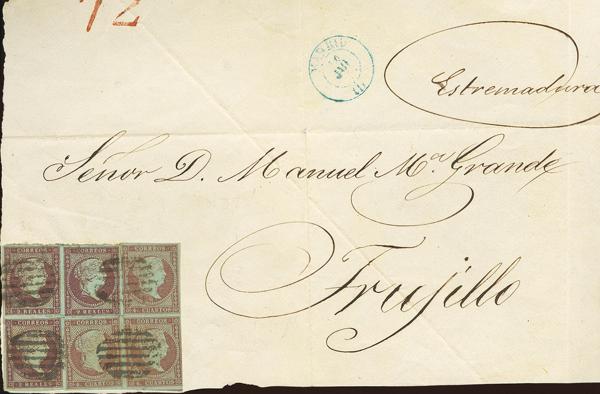 12
MADRID
6
Estremadura
Señor D. Manuel Mª Grande
Trujillo
CORREOS CORREOS CORREOS
2 REALES 2 REALES 4 CUARTOS
CORREOS CORREOS CORREOS
2 REALES 4 CUARTOS 4 CUARTOS